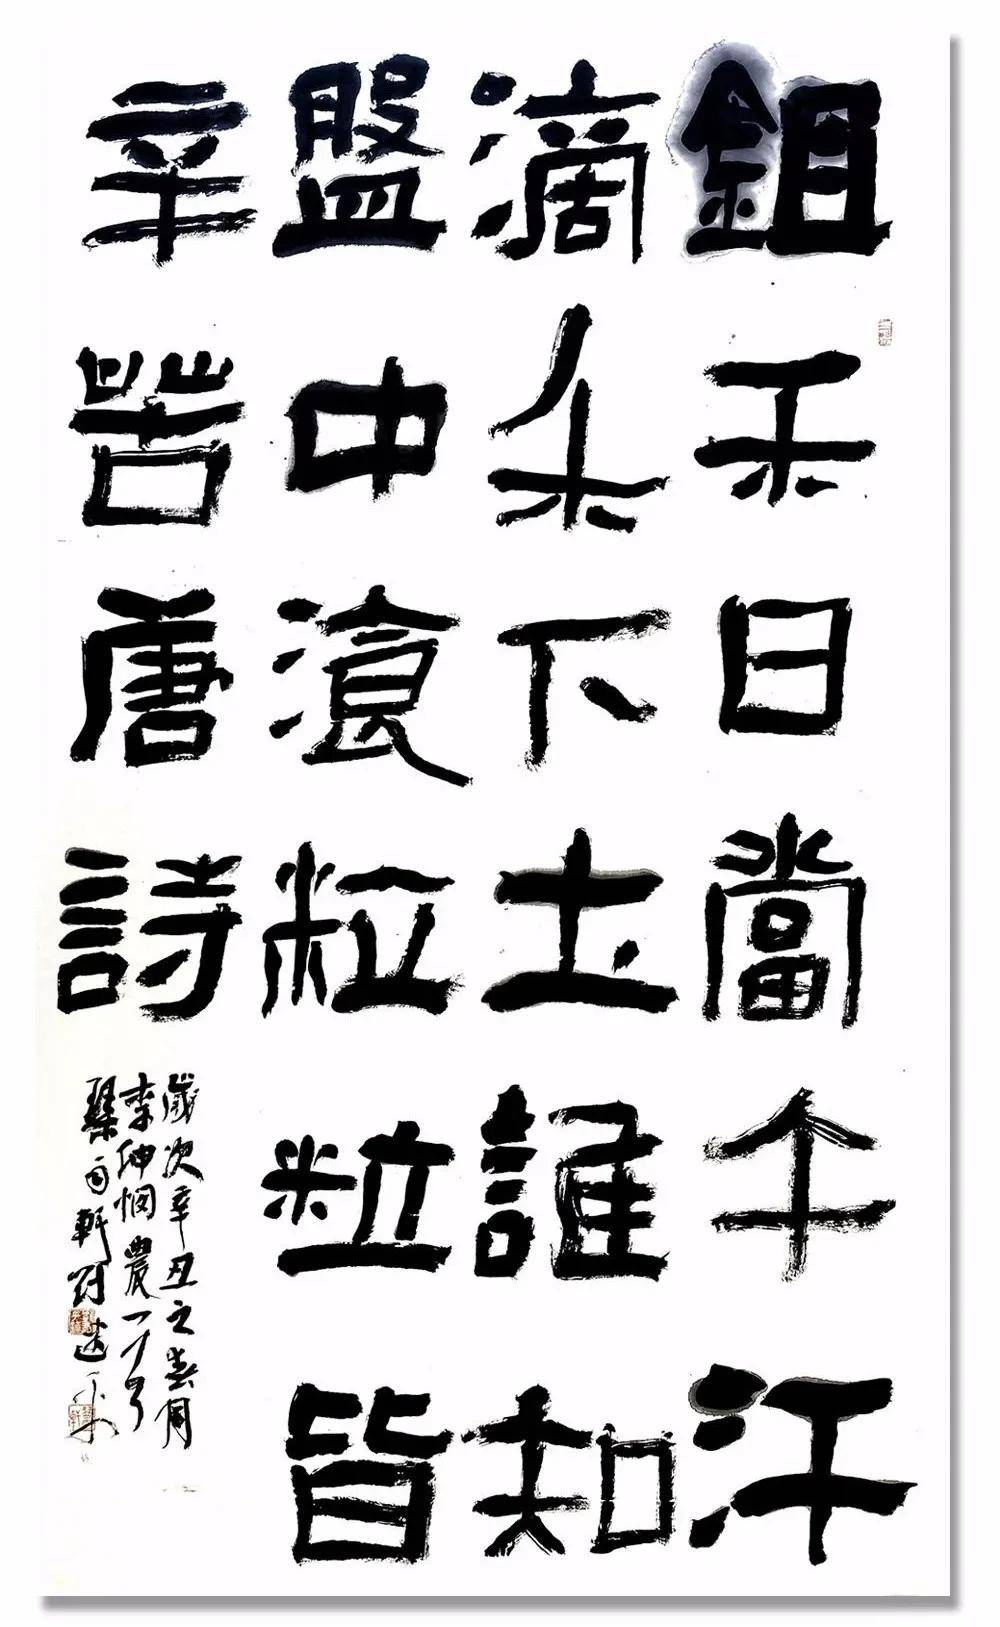 鉏禾日當午汗
滴禾下土誰知
盤中湌粒粒皆
辛苦唐詩
歲次辛丑之春
李紳憫農一首
軒